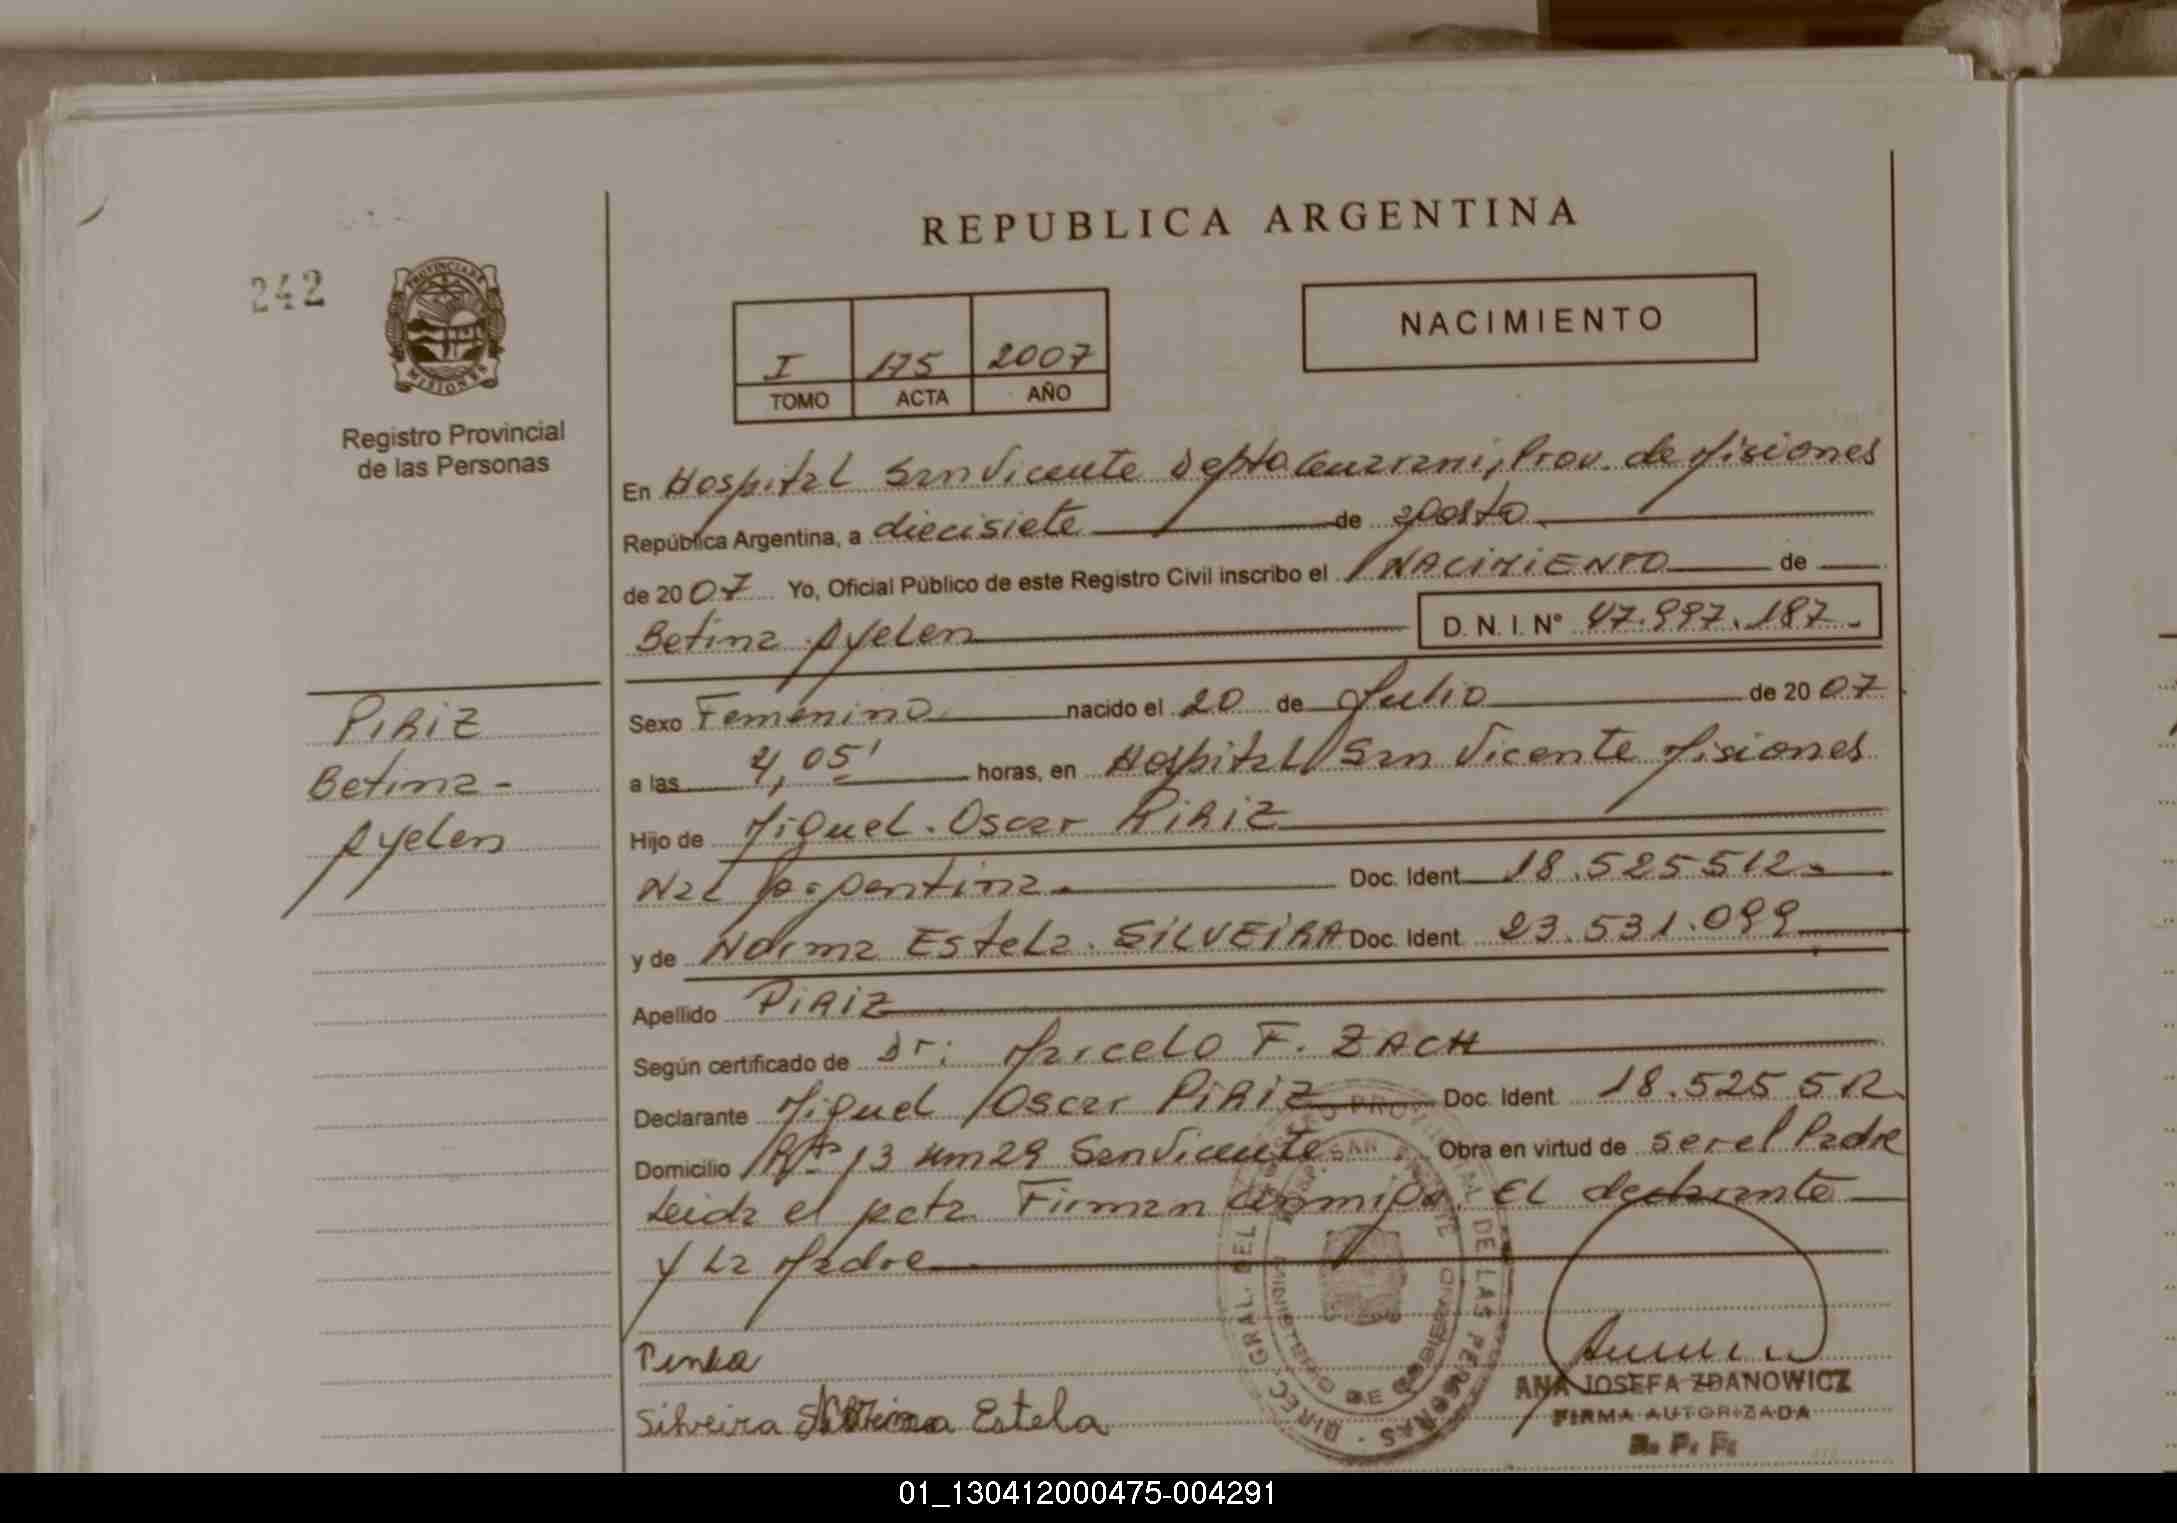 REPUBLICA ARGENTINA
242
PROVINCIA DE
MISIONES
Registro Provincial
de las Personas
NACIMIENTO
I 175 2007
TOMO ACTA AÑO
En Hospital San Vicente Depto Guarani, Prov. de Misiones
República Argentina, a diecisiete de agosto
de 2007 Yo, Oficial Público de este Registro Civil inscribo el NACIMIENTO de
Betina Ayelen D. N. I. Nº 47.997.187.-
Sexo Femenino nacido el 20 de Julio de 2007
a las 4,05' horas, en Hospital San Vicente Misiones
Hijo de Miguel Oscar PIRIZ
Nac Argentina Doc. Ident 18.525512-
y de Norma Estela SILVEIRA Doc. Ident 23.531.099
Apellido PIRIZ
Según certificado de Dr: Marcelo F. ZACH
Declarante Miguel Oscar PIRIZ Doc. Ident 18.525 512
Domicilio Rta 13 Km 29 San Vicente Obra en virtud de ser el Padre
Leida el acta Firman conmigo, El declarante
y La Madre
PIRIZ
Betina-
Ayelen
Silveira Estela
DIREC. GRAL. DEL REGISTRO PROVINCIAL DE LAS PERSONAS
SAN VICENTE
MINISTERIO DE GOBIERNO
ANA JOSEFA ZDANOWICZ
FIRMA AUTORIZADA
R. P. P.
01_130412000475-004291